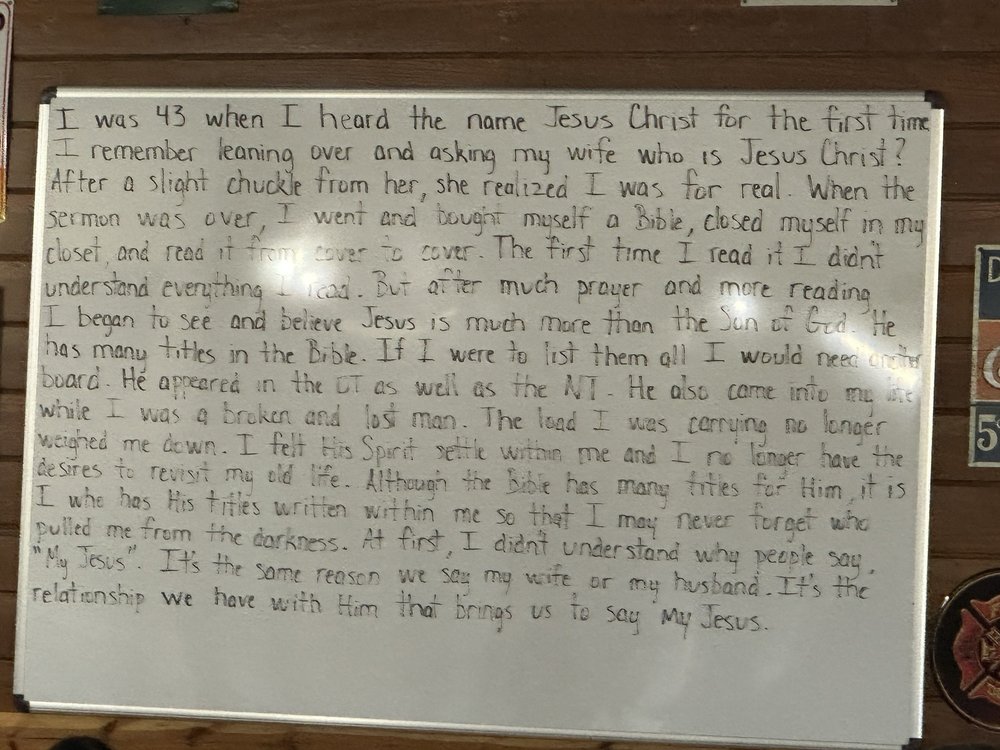 I was 43 when I heard the name Jesus Christ for the first time
I remember leaning over and asking my wife who is Jesus Christ?
After a slight chuckle from her, she realized I was for real. When the
sermon was over, I went and bought myself a Bible, closed myself in my
closet, and read it from cover to cover. The first time I read it I didn't
understand everything I read. But after much prayer and more reading
I began to see and believe Jesus is much more than the Son of God. He
has many titles in the Bible. If I were to list them all I would need another
board. He appeared in the OT as well as the NT. He also came into my life
while I was a broken and lost man. The load I was carrying no longer
weighed me down. I felt His Spirit settle within me and I no longer have the
desires to revisit my old life. Although the Bible has many titles for Him, it is
I who has His titles written within me so that I may never forget who
pulled me from the darkness. At first, I didn't understand why people say,
"My Jesus". It's the same reason we say my wife or my husband. It's the
relationship we have with Him that brings us to say My Jesus.
D
5